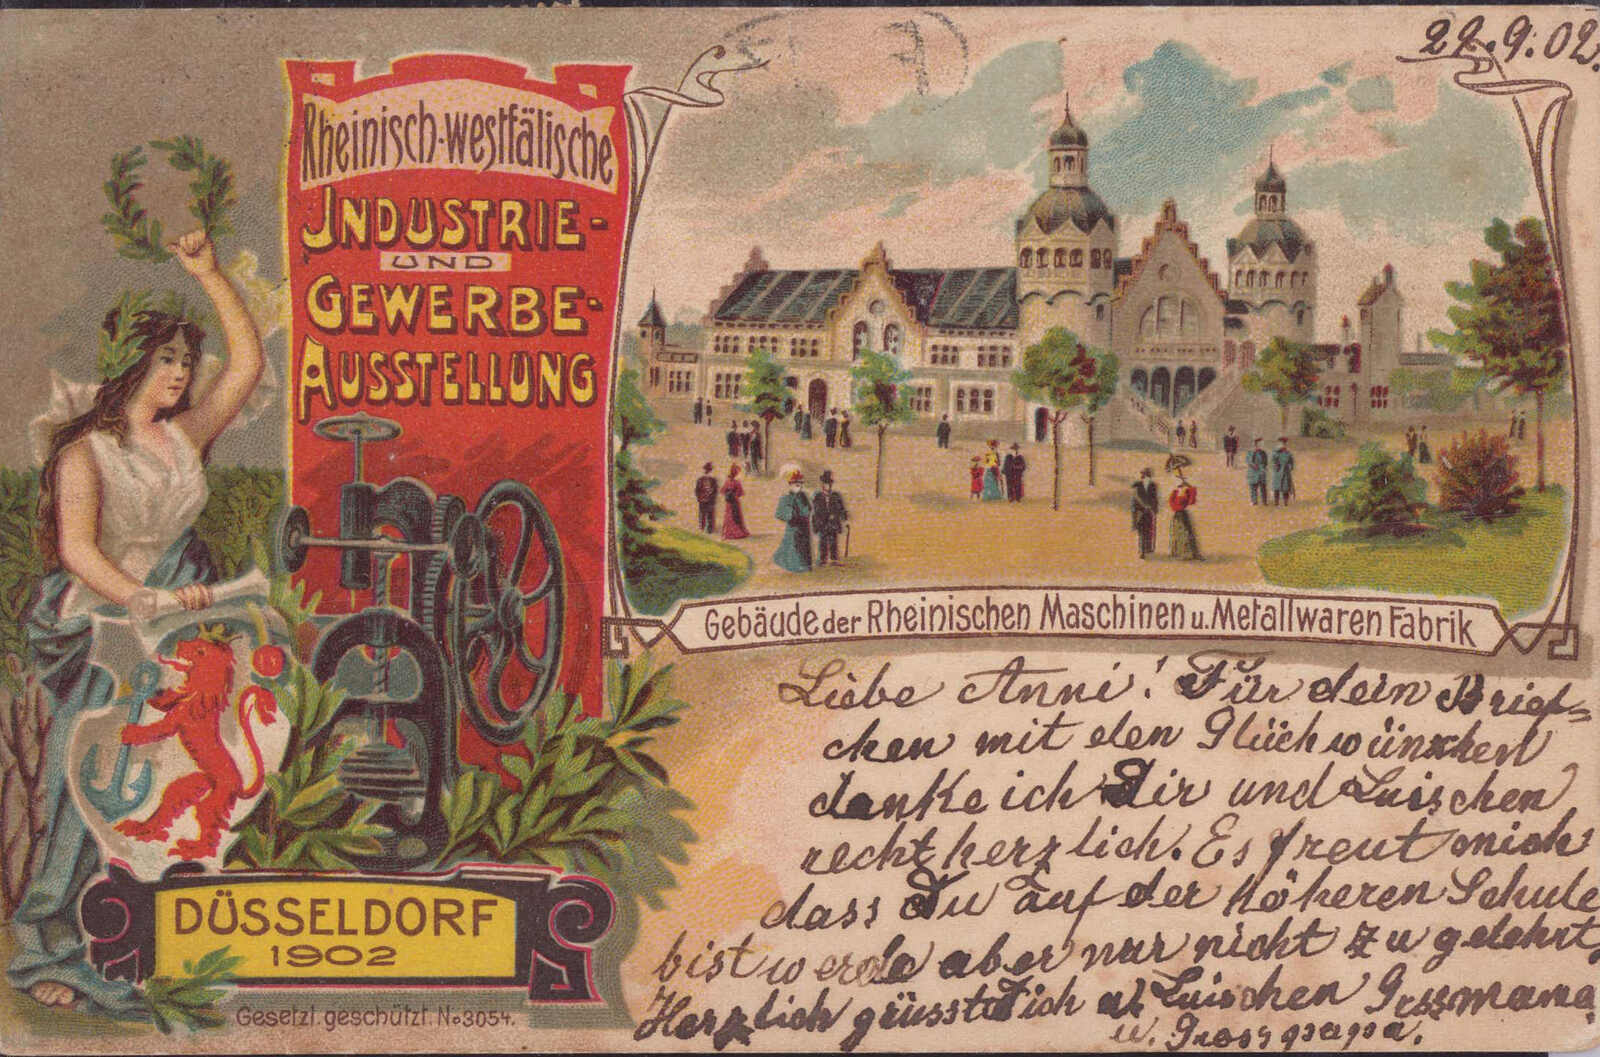 22.9.02.
Rheinisch-westfälische
INDUSTRIE-
UND
GEWERBE-
AUSSTELLUNG
Gebäude der Rheinischen Maschinen u. Metallwaren Fabrik
Liebe Anni! Für dein Brief-
chen mit den Glückwünschen
danke ich Dir und Luischen
recht herzlich. Es freut mich
dass Du auf der höheren Schule
bist werde aber nur nicht zu gelehrt,
Herzlich grüsst Dich u. Luischen Grossmama
u. Grosspapa.
DÜSSELDORF
1902
Gesetzl. geschützt. No 3054.